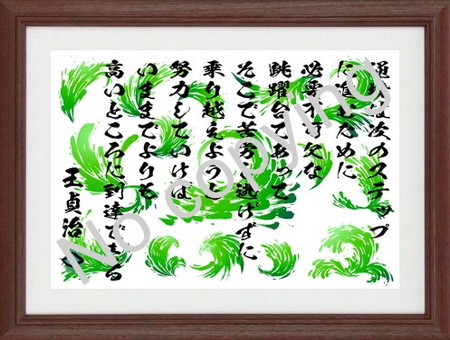 次のステップ
に進むために
必要不可欠な
跳躍台であって
そこで苦労を逃げずに
乗り越えようと
努力していけば
いままでよりも
高いところに到達できる
王貞治
No copying